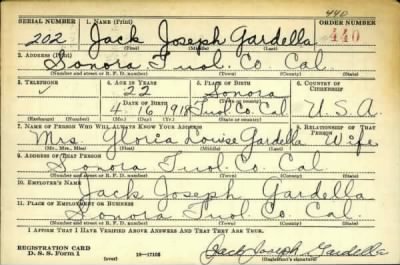 440
SERIAL NUMBER 1. NAME (Print) ORDER NUMBER
202 Jack Joseph Gardella 440
(First) (Middle) (Last)
2. ADDRESS (Print)
Sonora Tuol. Co. Cal.
(Number and street or R. F. D. number) (Town) (County) (State)
3. TELEPHONE 4. AGE IN YEARS 5. PLACE OF BIRTH 6. COUNTRY OF CITIZENSHIP
✓ 22 Sonora
DATE OF BIRTH (Town or county)
4 16 1918 Tuol. Co. Cal U.S.A.
(Exchange) (Number) (Mo.) (Day) (Yr.) (State or country)
7. NAME OF PERSON WHO WILL ALWAYS KNOW YOUR ADDRESS 8. RELATIONSHIP OF THAT PERSON
Mrs. Gloria Louise Gardella Wife
(Mr., Mrs., Miss) (First) (Middle) (Last)
9. ADDRESS OF THAT PERSON
Sonora Tuol. Co. Cal.
(Number and street or R. F. D. number) (Town) (County) (State)
10. EMPLOYER'S NAME
Jack Joseph Gardella
11. PLACE OF EMPLOYMENT OR BUSINESS
Sonora Tuol. Co. Cal.
(Number and street or R. F. D. number) (Town) (County) (State)
I AFFIRM THAT I HAVE VERIFIED ABOVE ANSWERS AND THAT THEY ARE TRUE.
REGISTRATION CARD
D. S. S. Form 1 (over) 16—17105 Jack Joseph Gardella
(Registrant's signature)